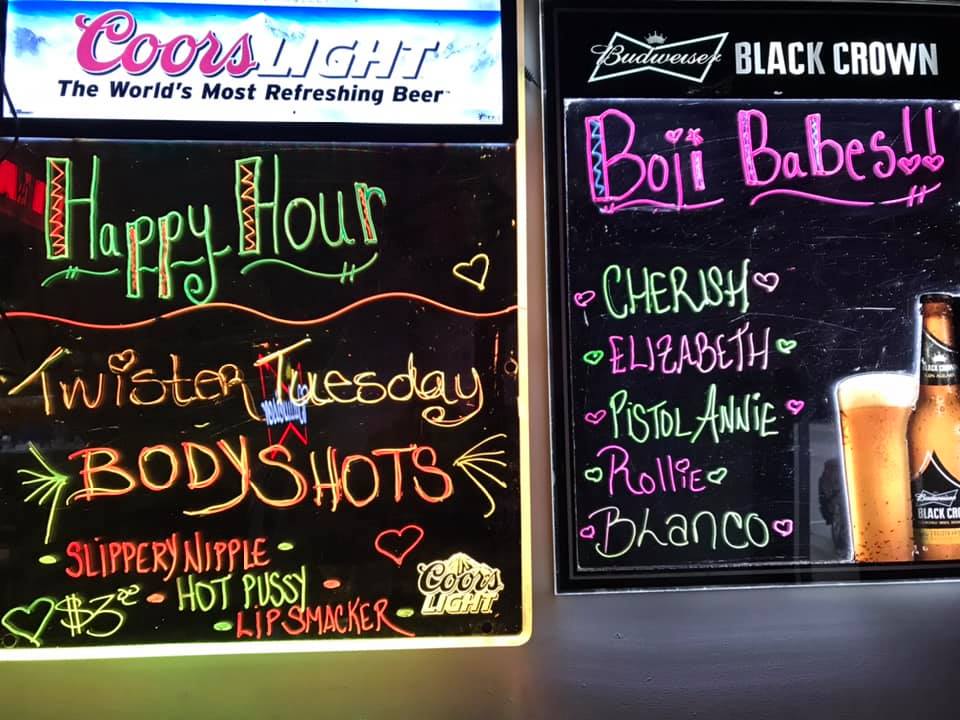 Coors LIGHT
The World's Most Refreshing Beer
Happy Hour
Twister Tuesday
BODY SHOTS
SLIPPERY NIPPLE
HOT PUSSY
$3.00
LIPSMACKER
Coors
LIGHT
Budweiser BLACK CROWN
Boji Babes!!
CHERISH
ELIZABETH
PISTOL ANNIE
Rollie
BLANCO
BLACK CROWN
Budweiser
BLACK CRO